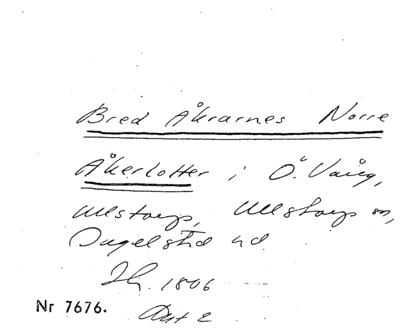 Bred Åkrarnes Norre
Åkerlotter i Ö. Vång,
Ullstorps, Ullstorps sn,
Ingelstad hd.
1806
Nr 7676. Akt 2